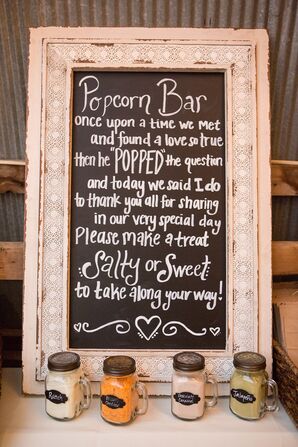 Popcorn Bar
once upon a time we met
and found a love so true
then he "POPPED" the question
and today we said I do
to thank you all for sharing
in our very special day
Please make a treat
Salty or Sweet
to take along your way!
Ranch
Jalapeño